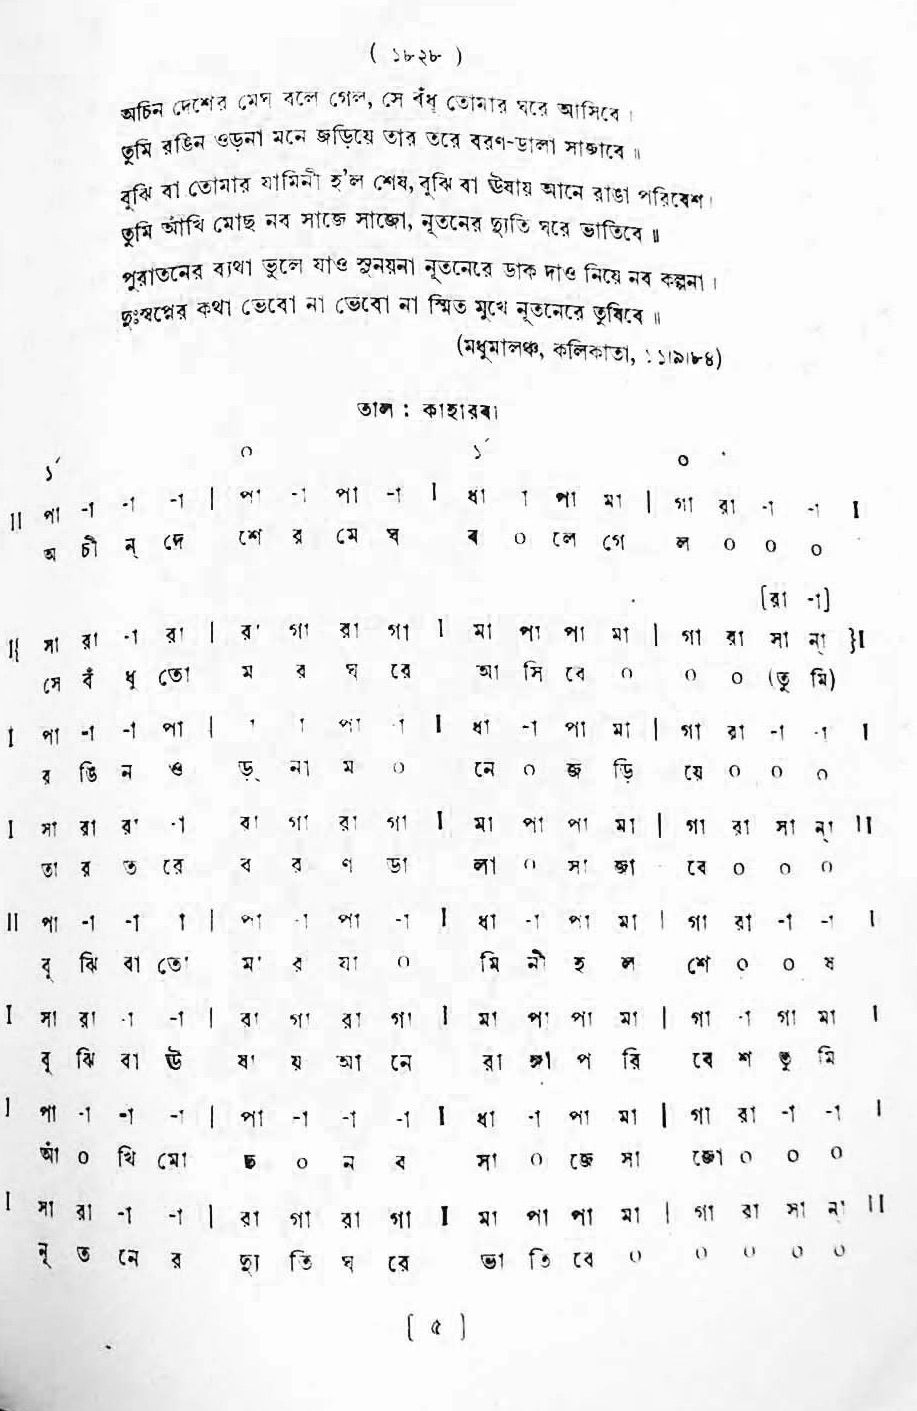 ( ১৮২৮ )
অচিন দেশের মেঘ বলে গেল, সে বঁধু তোমার ঘরে আসিবে।
তুমি রঙিন ওড়না মনে জড়িয়ে তার তরে বরণ-ডালা সাজাবে॥
বুঝি বা তোমার যামিনী হ'ল শেষ, বুঝি বা ঊষায় আনে রাঙা পরিবেশ।
তুমি আঁখি মোছ নব সাজে সাজো, নূতনের দ্যুতি ঘরে ভাতিবে॥
পুরাতনের ব্যথা ভুলে যাও সুনয়না নূতনেরে ডাক দাও নিয়ে নব কল্পনা।
দুঃস্বপ্নের কথা ভেবো না ভেবো না স্মিত মুখে নূতনেরে তুষিবে॥
(মধুমালঞ্চ, কলিকাতা, ১১৷৯৷৮৪)
তাল : কাহারবা
১´ ০ ১´ ০
II পা -া -া -া | পা -া পা -া I ধা া পা মা | গা রা -া -া I
অ চী ন্ দে শে র মে ঘ ব ০ লে গে ল ০ ০ ০
[রা -া]
II{ সা রা -া রা | র' গা রা গা I মা পা পা মা | গা রা সা না্ }I
সে বঁ ধু তো ম র ঘ রে আ সি বে ০ ০ ০ (তু মি)
I পা -া -া পা | া া পা -া I ধা -া পা মা | গা রা -া -া I
র ঙি ন ও ড়্ না ম ০ নে ০ জ ড়ি য়ে ০ ০ ০
I সা রা র' -া রা গা রা গা I মা পা পা মা | গা রা সা না্ II
তা র ত রে ব র ণ ডা লা ০ সা জা বে ০ ০ ০
II পা -া -া া | পা -া পা -া I ধা -া পা মা | গা রা -া -া I
বু ঝি বা তো ম' র যা ০ মি নী হ ল শে ০ ০ ষ
I সা রা -া -া | রা গা রা গা I মা পা পা মা | গা -া গা মা I
বু ঝি বা ঊ ষা য় আ নে রা ঙ্গা প রি বে শ তু মি
I পা -া -া -া | পা -া -া -া I ধা -া পা মা | গা রা -া -া I
আঁ ০ খি মো ছ ০ ন ব সা ০ জে সা জো ০ ০ ০
I সা রা -া -া | রা গা রা গা I মা পা পা মা | গা রা সা না্ II
নূ ত নে র দ্যু তি ঘ রে ভা তি বে ০ ০ ০ ০ ০
[ ৫ ]